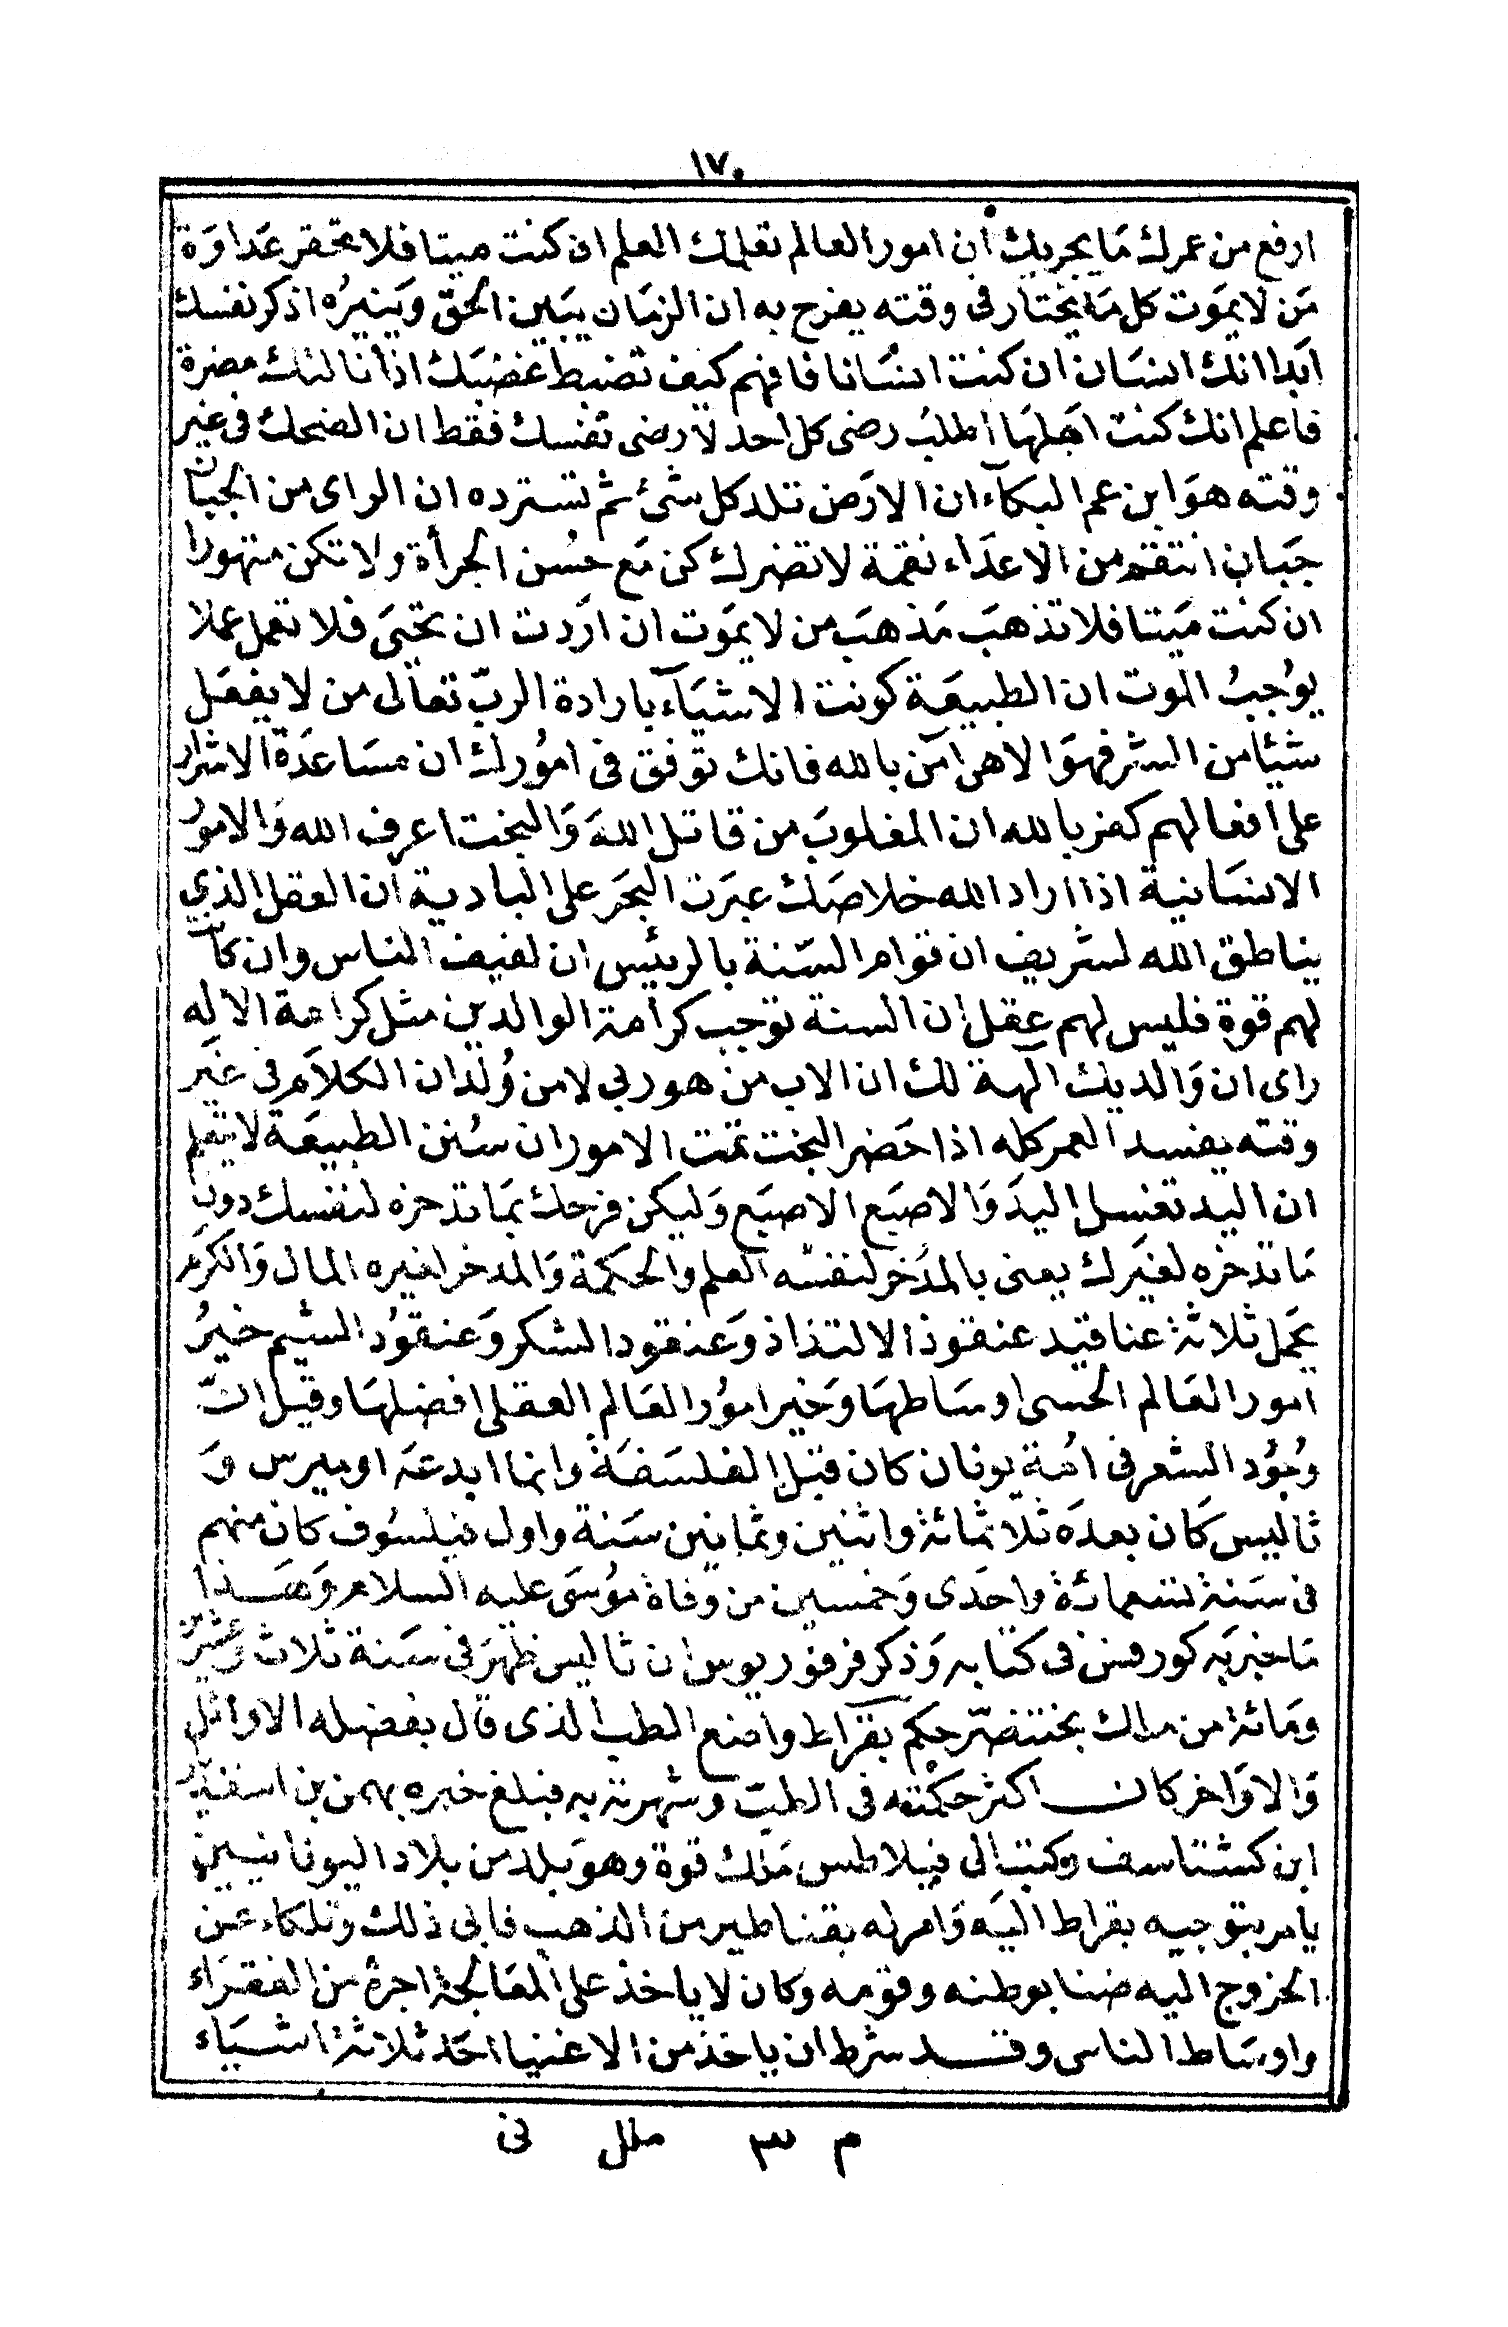 ١٧٠
ارفع من عمرك مَا يحزنك ان امور العالم تعلمك العلم ان كنت ميتا فلا تحقر عَداوَة
مَن لا يموَت كل مَا يختار فى وقته يفرح به ان الزمَان يبَين الحق وَينيرُه اذكر نفسك
ابَدا انك انسَان ان كنت انسَانا فافهم كيف تضبط غضبَك اذا نالتك مضرة
فاعلم انك كنت اهَلهَا اطلبُ رضى كل احد لا رضى نفسك فقط ان الضحك فى غير
وقته هوَ ابن عم البكآء ان الارَض تلد كل شئ ثم تسترده ان الراى من الجبان
جَبان انتقم من الاعدَاء نقمة لا تضرك كن مَع حسُن الجرأة ولا تكن متهورا
ان كنت مَيتا فلا تذهبَ مَذهبَ من لا يموَت ان ارَدت ان تحيَى فلا تعمل عملا
يوُجبُ الموت ان الطبيعَة كونت الاشيَآء بارادة الربّ تعالى من لا يفعَل
شيئا من الشر فهوَ الاهى آمن بالله فانك توفق فى اموُرك ان مسَاعدَة الاشرار
على افعالهم كفر بالله ان المغلوبَ من قاتل اللهَ وَالبخت اعرف الله وَالاموُر
الانسَانية اذا اراد الله خلاصَك عبَرت البحَر على البادية ان العقل الذي
يناطق الله لشريف ان قوام السّنة بالرئيس ان لفيف الناس وان كآ
لهم قوة فليس لهم عقل ان السنة توجب كرامة الوالدين مثل كرامة الاله
راى ان وَالديك آلهة لك ان الاب من هو ربى لا من وُلد ان الكلاَم فى غيَر
وقته يفسد العمر كله اذا حَضر البخت تمت الامور ان سُنن الطبيعَة لا تتعلم
ان اليد تغسل اليدَ وَالاصبَع الاصبَع وَليكن فرحك بمَا تدخره لنفسك دون
مَا تدخره لغيَرك يعنى بالمدَخر لنفسه العلم والحكمَة وَالمدخر لغيره المال وَالكرَم
يحَمل ثلاثة عناقيد عنقود الالتذاذ وَعنقود السكر وَعنقوُد الشيم خيرُ
امور العَالم الحسى اوسَاطهَا وَخير اموُر العَالم العقلى افضلهَا وقيل انّ
وُجوُد الشعر فى امُة يونان كان قبَل الفلسَفَة وانما ابدعَه اوميرس وَ
ثاليس كَان بعدَه ثلاثمائة واثنين وثمانين سَنة واول فيلسُوف كان منهم
فى سَنة تسعمائة واحَدى وَخمسين من وفاة موُسَى عليه السلام وَهَذا
مَا خبر به كورفس فى كتابه وَذكر فرفوريوس ان ثاليس ظهَر فى سَنة ثلاث وعشرين
ومَائة من ملك بختنصّر حكم بقرَاط واضع الطب الذى قال بفضله الاوائل
وَالاوَاخر كان اكثر حكمَته فى الطبّ وشهرته به فبلغ خبره بهمن بن اسفنديار
ابن كشتاسف وكتب الى فيلاطس مَلك قوة وهوَ بلد من بلاد اليونانيين
يامر بتوجيه بقراط اليَه وَامر له بقناطير من الذهب فابى ذلك وتلكاء عن
الخروج اليه ضنا بوطنه وقومه وكان لا ياخذ على المعَالجة اجرة من الفقرَاء
واوسَاط الناس وقد شرط ان ياخذ من الاغنيا احَد ثلاثة اشيَاء
م ٣ ملل نى